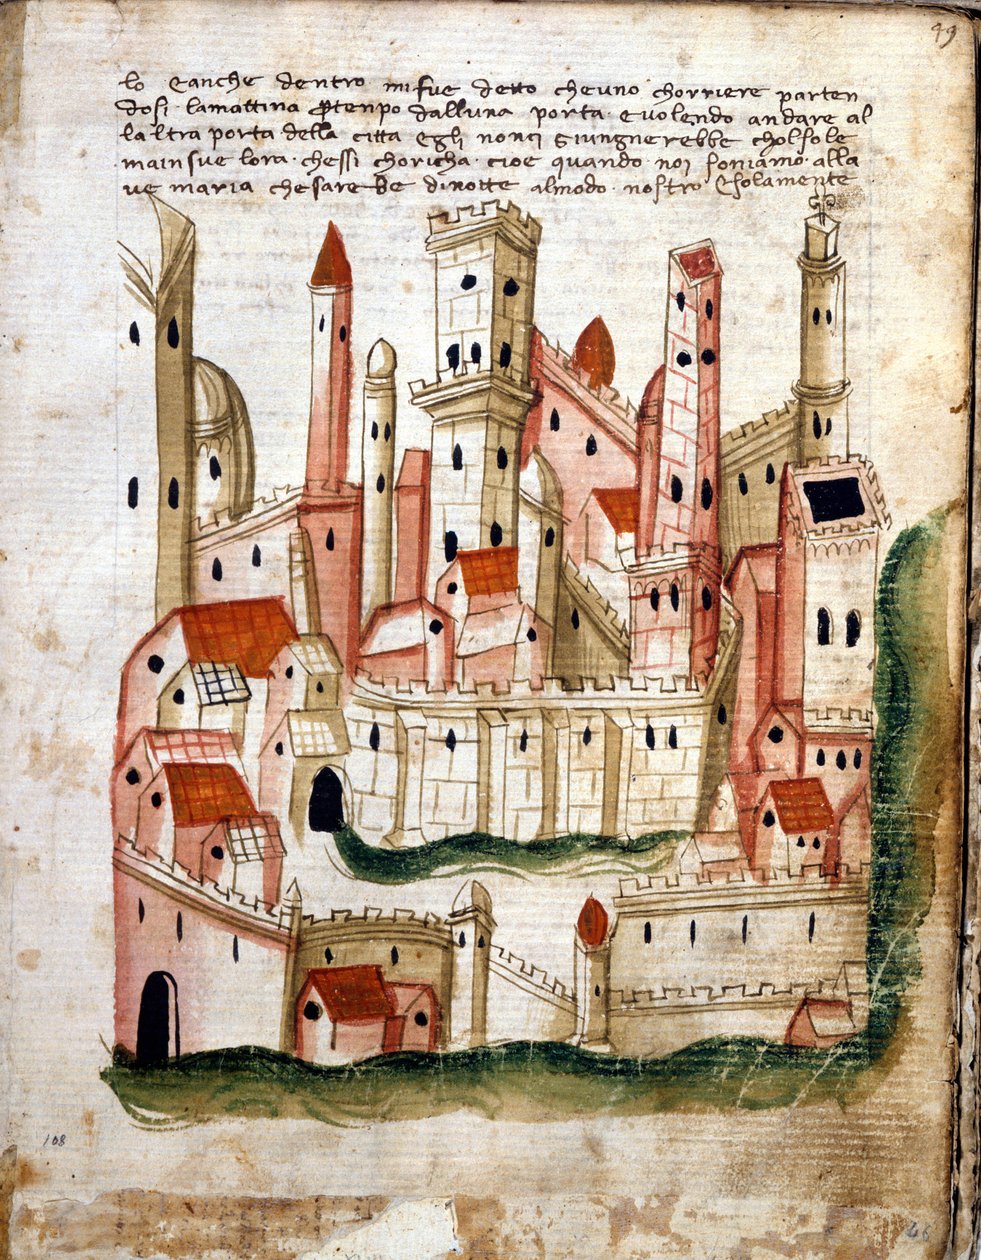 49
lo Eanche dentro mi fue detto che uno chorriere parten
dosi lamattina ꝑtenpo dalluna porta · Euolendo andare al
laltra porta della citta Egli nonci giungnerebbe cholsole
mainsue lora · chessi choricha · cioe quando noi soniamo alla
ue maria che sarebbe dinotte almodo · nostro Esolamente
108